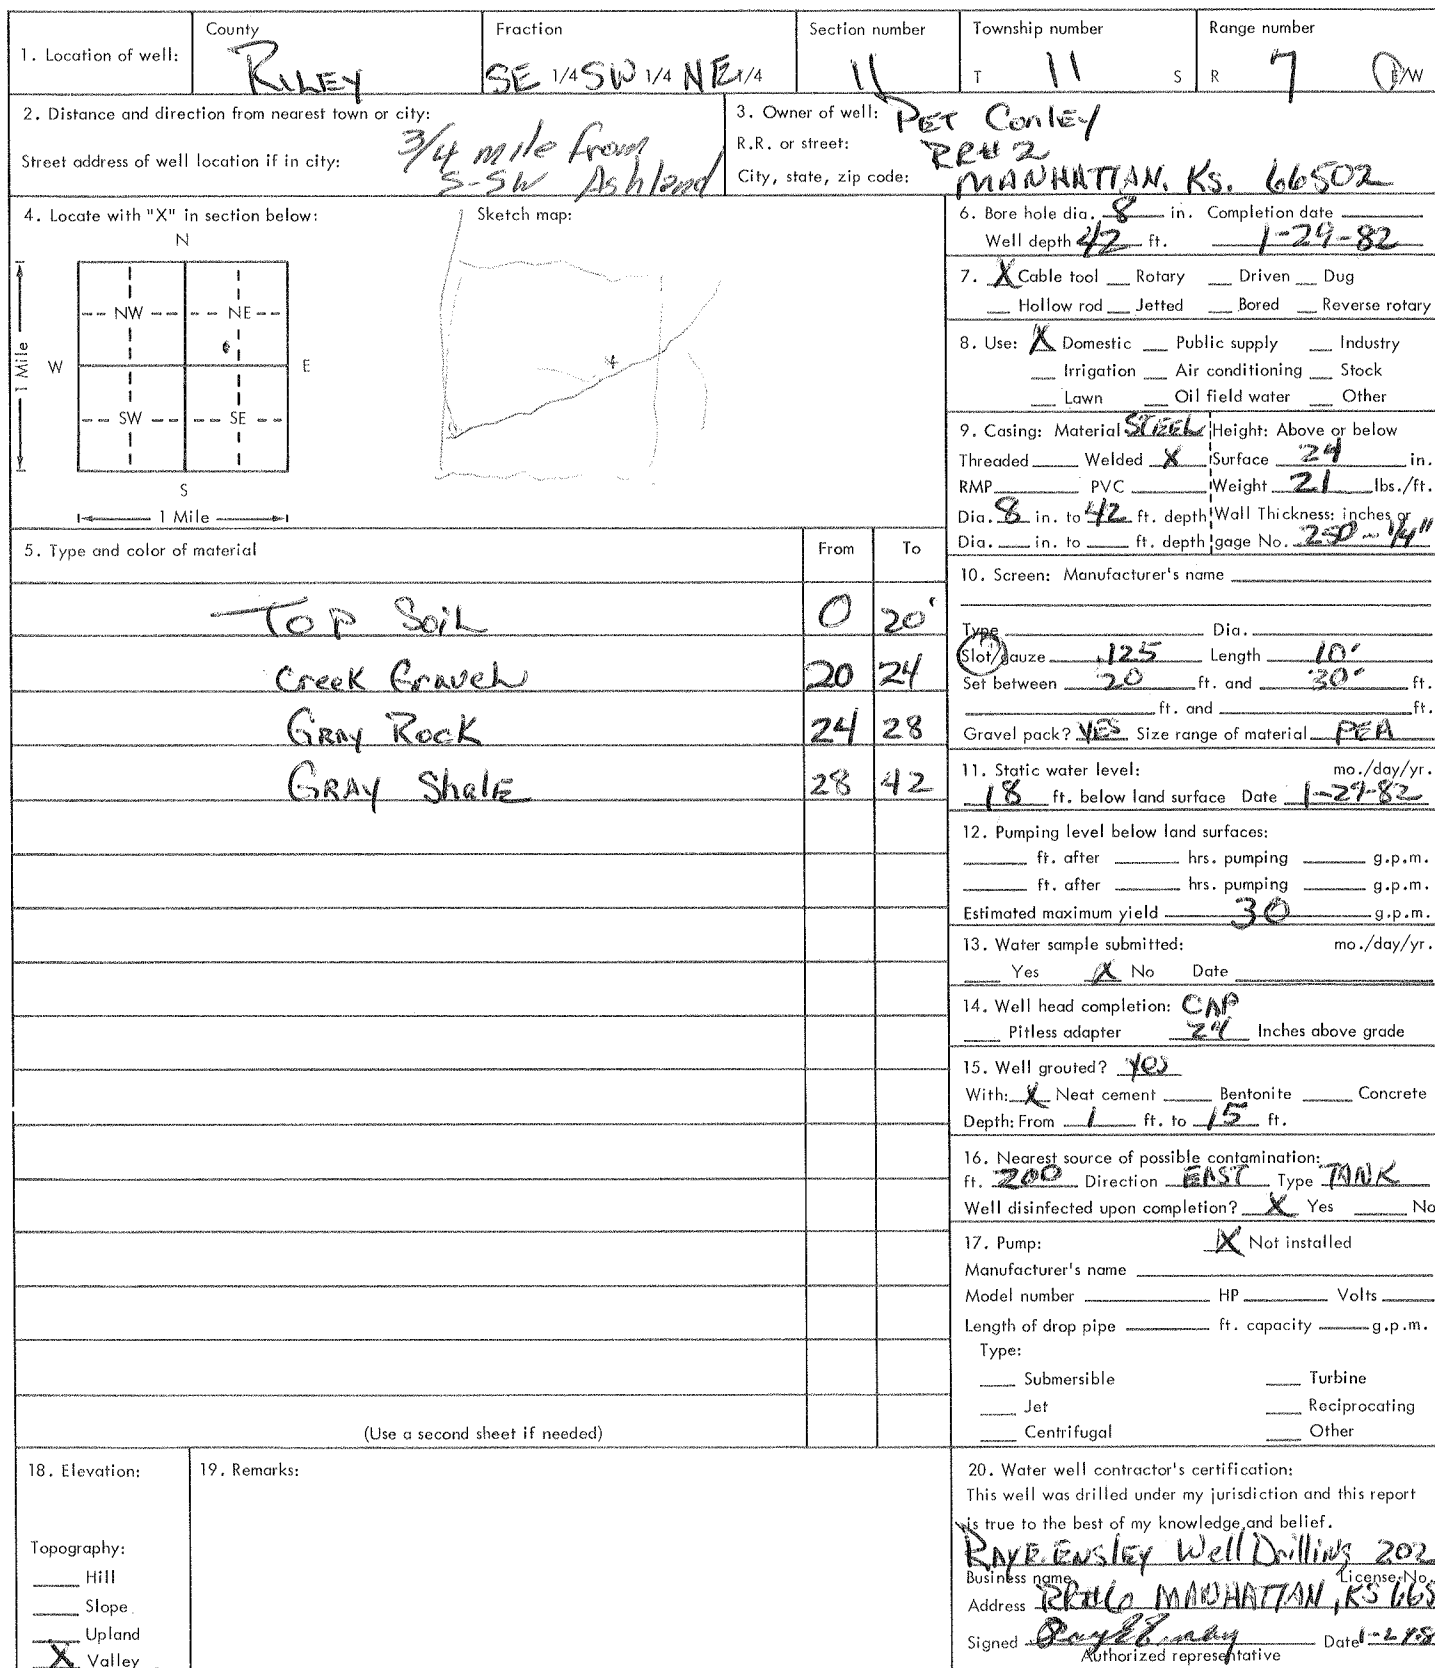 1. Location of well: County RILEY Fraction SE 1/4 SW 1/4 NE 1/4 Section number 11 Township number T 11 S Range number R 7 E/W
2. Distance and direction from nearest town or city: 3/4 mile from
Street address of well location if in city: S-SW Ashland
3. Owner of well: PET Conley
R.R. or street: RR# 2
City, state, zip code: MANHATTAN, KS. 66502
4. Locate with "X" in section below: Sketch map:
N
NW NE
W E
1 Mile
SW SE
S
1 Mile
5. Type and color of material From To
Top Soil 0 20'
Creek Gravel 20 24
GRAY Rock 24 28
GRAY Shale 28 42
(Use a second sheet if needed)
6. Bore hole dia. 8 in. Completion date
Well depth 42 ft. 1-29-82
7. X Cable tool Rotary Driven Dug
Hollow rod Jetted Bored Reverse rotary
8. Use: X Domestic Public supply Industry
Irrigation Air conditioning Stock
Lawn Oil field water Other
9. Casing: Material STEEL Height: Above or below
Threaded Welded X Surface 24 in.
RMP PVC Weight 21 lbs./ft.
Dia. 8 in. to 42 ft. depth Wall Thickness: inches or
Dia. in. to ft. depth gage No. 250 - 1/4"
10. Screen: Manufacturer's name
Type Dia.
Slot/gauze .125 Length 10'
Set between 20 ft. and 30' ft.
ft. and ft.
Gravel pack? YES Size range of material PEA
11. Static water level: mo./day/yr.
18 ft. below land surface Date 1-29-82
12. Pumping level below land surfaces:
ft. after hrs. pumping g.p.m.
ft. after hrs. pumping g.p.m.
Estimated maximum yield 30 g.p.m.
13. Water sample submitted: mo./day/yr.
Yes X No Date
14. Well head completion: CAP
Pitless adapter 24 Inches above grade
15. Well grouted? yes
With: X Neat cement Bentonite Concrete
Depth: From 1 ft. to 15 ft.
16. Nearest source of possible contamination:
ft. 200 Direction EAST Type TANK
Well disinfected upon completion? X Yes No
17. Pump: X Not installed
Manufacturer's name
Model number HP Volts
Length of drop pipe ft. capacity g.p.m.
Type:
Submersible Turbine
Jet Reciprocating
Centrifugal Other
18. Elevation:
Topography:
Hill
Slope
Upland
X Valley
19. Remarks:
20. Water well contractor's certification:
This well was drilled under my jurisdiction and this report
is true to the best of my knowledge and belief.
RAY E. ENSLEY Well Drilling 202
Business name License No.
Address RR#6 MANHATTAN, KS 665
Signed Date
Authorized representative